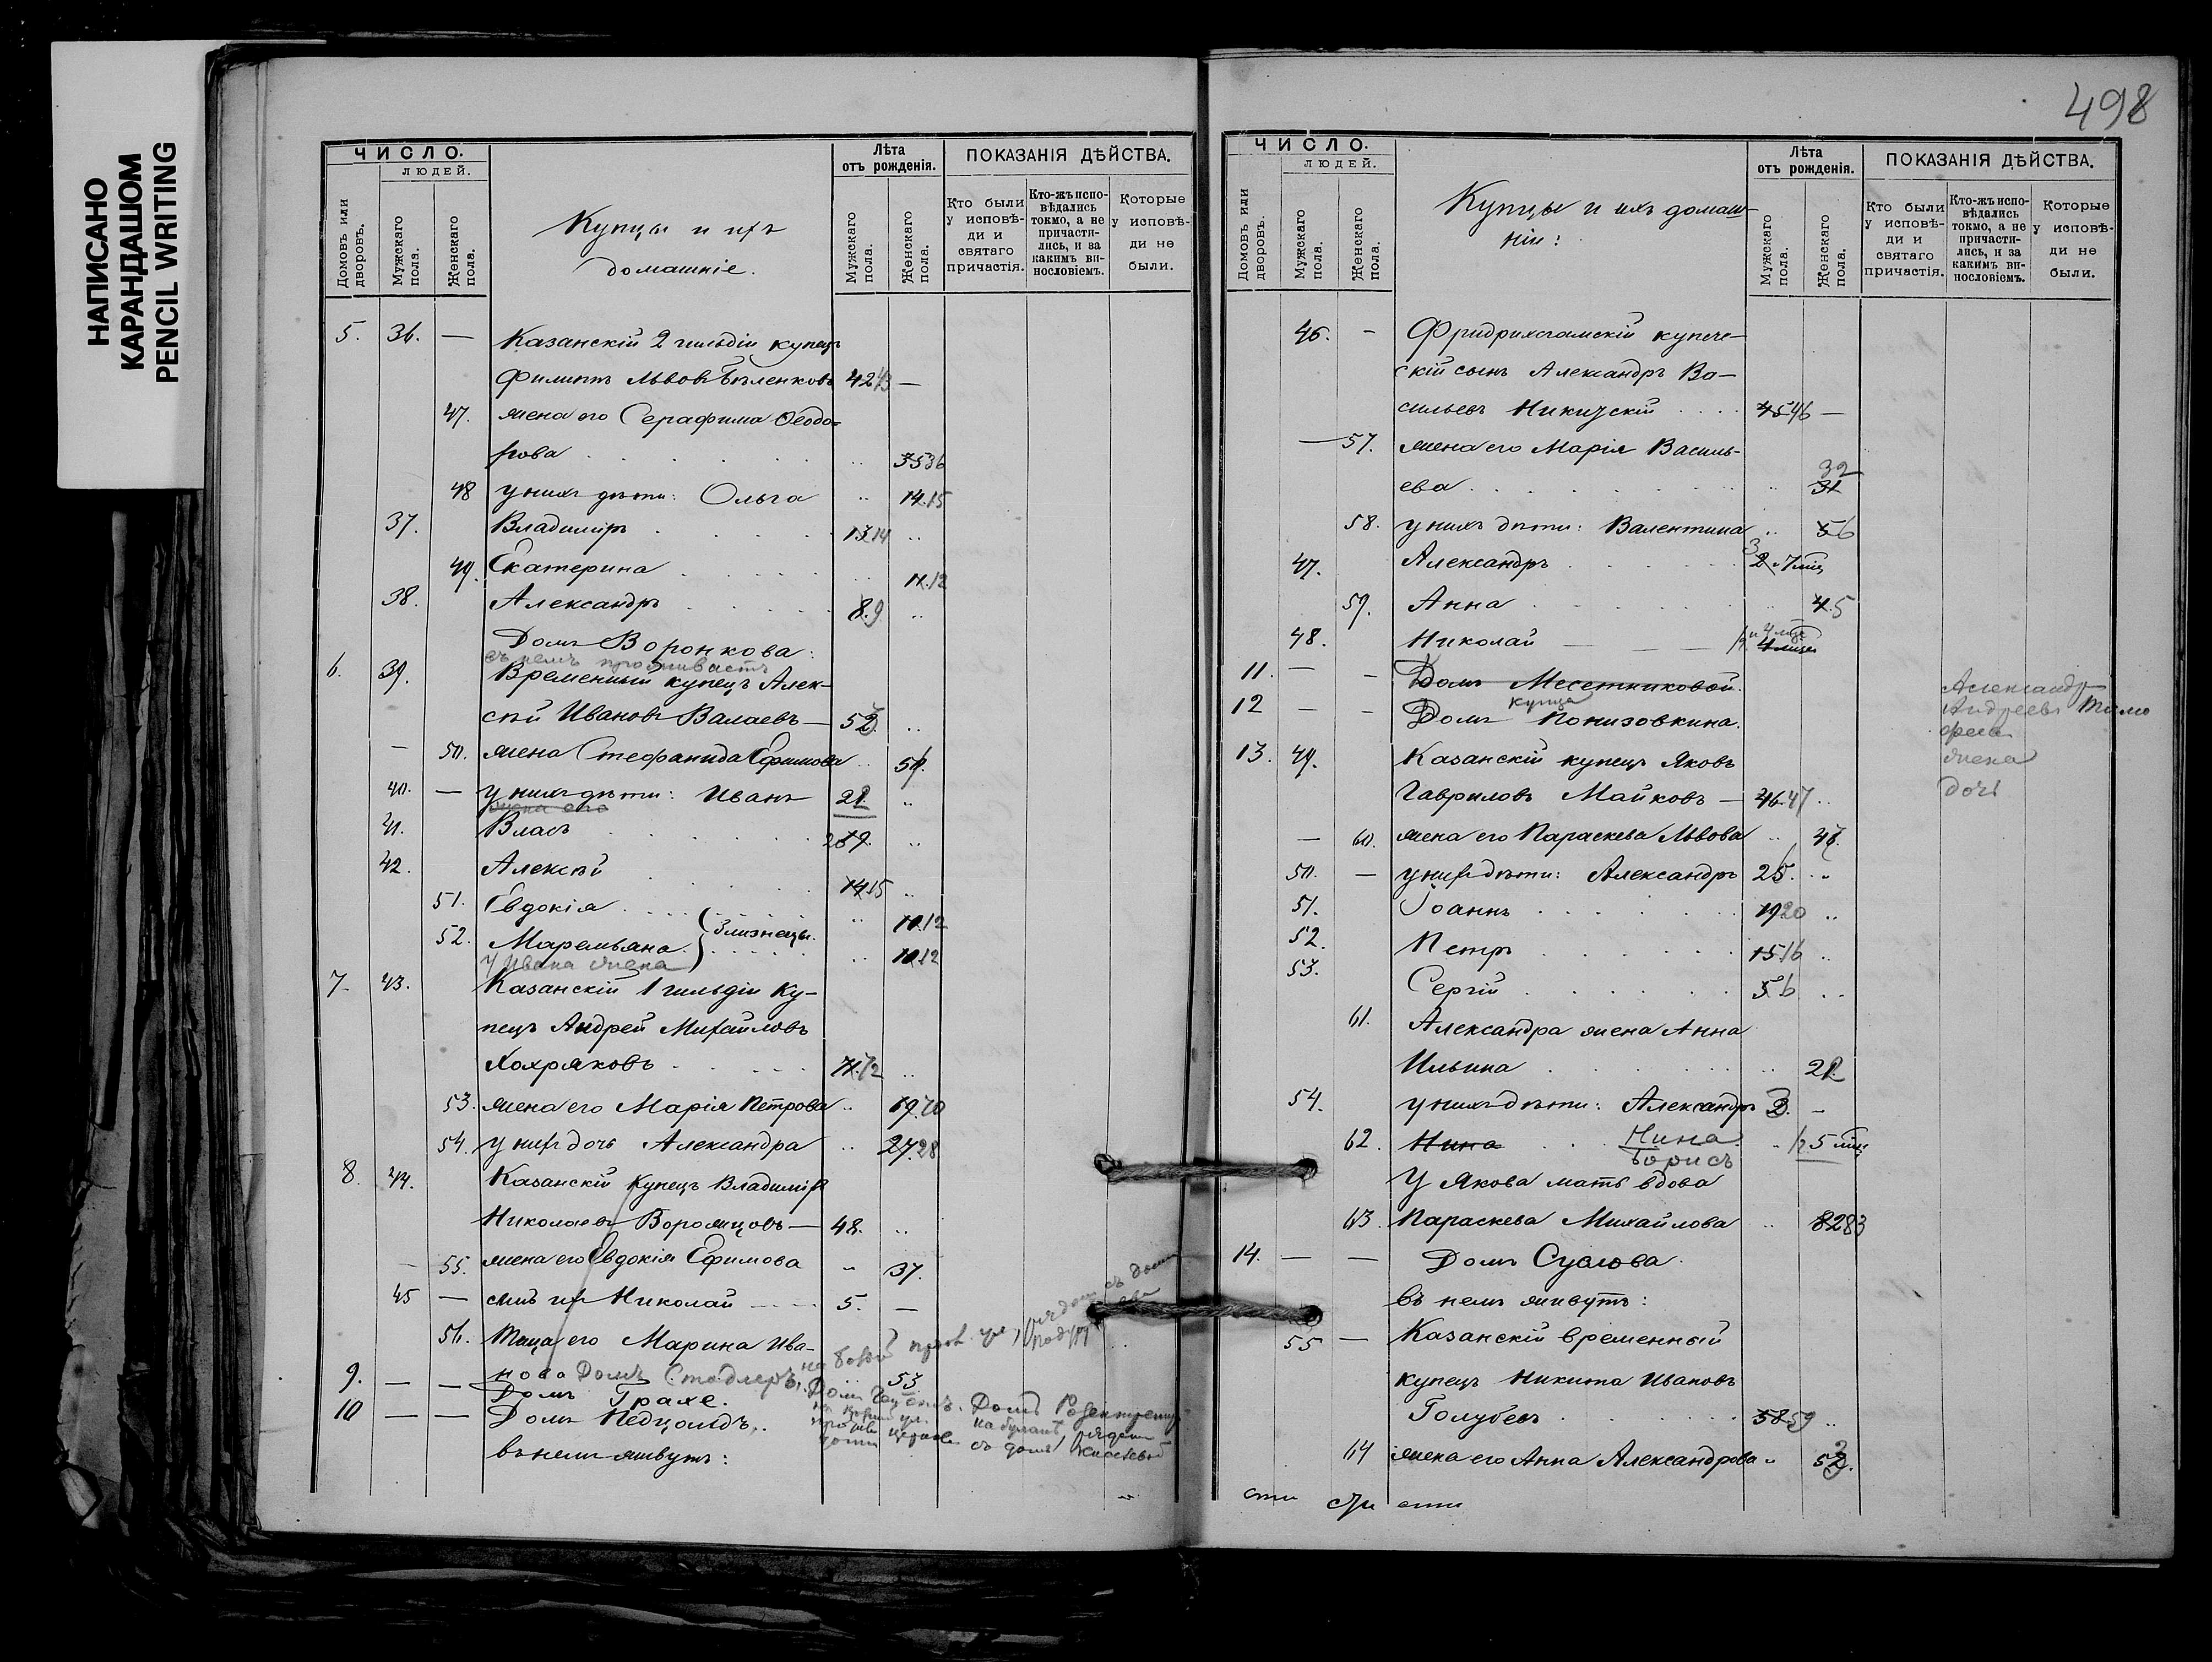 НАПИСАНО
КАРАНДАШОМ
PENCIL WRITING
498
ЧИСЛО.
ЛЮДЕЙ.
Домовъ или дворовъ.
Мужскаго пола.
Женскаго пола.
Купцы и ихъ
домашніе.
Лѣта
отъ рожденія.
Мужскаго пола.
Женскаго пола.
ПОКАЗАНІЯ ДѢЙСТВА.
Кто были у исповѣди и святаго причастія.
Кто-жъ исповѣдались токмо, а не причастились, и за какимъ винословіемъ.
Которые у исповѣди не были.
5. 36. — Казанскій 2 гильдіи купецъ
Филиппъ Львовъ Бѣленковъ 42 43 —
47. жена его Серафима Ѳеодо-
рова 35 36
48 у нихъ дѣти: Ольга 14 15
37. Владиміръ 13 14
49. Екатерина 11 12
38. Александръ 8. 9
Домъ Воронкова:
въ немъ проживаетъ
6. 39. Временный купецъ Алек-
сѣй Ивановъ Валаевъ — 52
— 50. жена Стефанида Ефимова
40. — у нихъ дѣти: Иванъ
жена его
41. Власъ
42. Алексѣй 14 15
51. Евдокія 12
52. Маремьяна близнецы. 12
у Ивана жена
7. 43. Казанскій 1 гильдіи ку-
пецъ Андрей Михайловъ
Хохряковъ 71. 72
53. жена его Марія Петрова 70
54. у нихъ дочь Александра 27. 28
8. 44. Казанскій купецъ Владиміръ
Николаевъ Воромцовъ — 48.
— 55. жена его Евдокія Ефимова 37.
45 — сынъ ихъ Николай 5. —
56. Теща его Марина Ива-
нова 53
9. — — Домъ Грахе.
10 — — Домъ Недцольдъ.
въ немъ живутъ:
ЧИСЛО.
ЛЮДЕЙ.
Домовъ или дворовъ.
Мужскаго пола.
Женскаго пола.
Купцы и ихъ домаш-
ніи:
Лѣта
отъ рожденія.
Мужскаго пола.
Женскаго пола.
ПОКАЗАНІЯ ДѢЙСТВА.
Кто были у исповѣди и святаго причастія.
Кто-жъ исповѣдались токмо, а не причастились, и за какимъ винословіемъ.
Которые у исповѣди не были.
46. — Фридрихсгамскій купече-
скій сынъ Александръ Ва-
сильевъ Никитскій 45 46 —
— 57. жена его Марія Василь-
ева 31 32
58. у нихъ дѣти: Валентина 5 6
47. Александръ 2 3
59. Анна 4 5
48. Николай
11. — — Домъ Месетниковой.
12 — — Домъ купца Понизовкина.
Александръ
Андреевъ Тимо
феевъ
жена
дочь
13. 49. Казанскій купецъ Яковъ
Гавриловъ Майковъ — 46 47
— 60. жена его Параскева Львова
50. — у нихъ дѣти: Александръ 25.
51. Іоаннъ 19 20
52. Петръ 15 16
53. Сергій 5 6
61. Александра жена Анна
Ильина
54. у нихъ дѣти: Александръ —
62. Нина Нина 5 мѣс
Борисъ
У Якова мать вдова
63. Параскева Михайлова 82 83
14. — — Домъ Суслова.
въ немъ живутъ:
55 — Казанскій временный
купецъ Никита Ивановъ
Голубевъ 58 59
64 жена его Анна Александрова 52